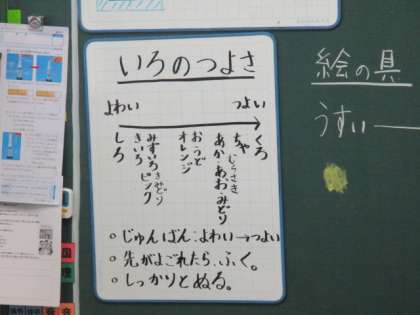 いろのつよさ
よわい つよい
しろ
みずいろ きみどり
きいろ ピンク
おうど
オレンジ
ちゃ むらさき
あか・あお・みどり
くろ
○じゅんばん：よわい→つよい
○先がよごれたら、ふく。
○しっかりとぬる。
絵の具
うすい